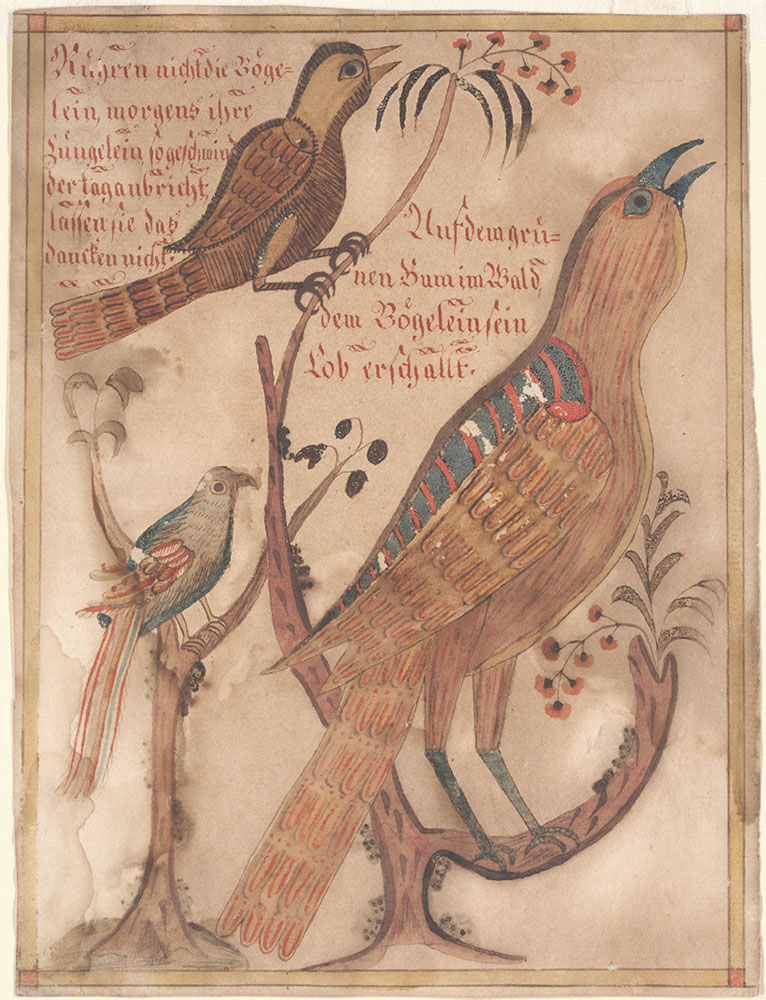 Rühren nicht die Vöge=
lein, morgens ihre
Züngelein, so geschwind
der tag anbricht,
lassen sie das
dancken nicht.
Auf dem grü=
nen Bum im Wald,
dem Vögelein sein
Lob erschallt.